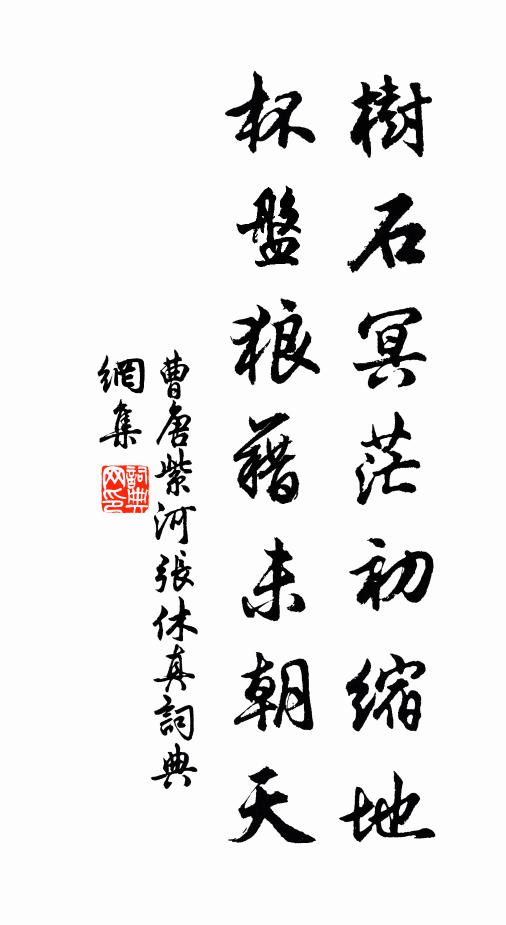 樹石冥茫初縮地
杯盤狼藉未朝天
曹唐紫河張休真詞典
網集
詞典網印